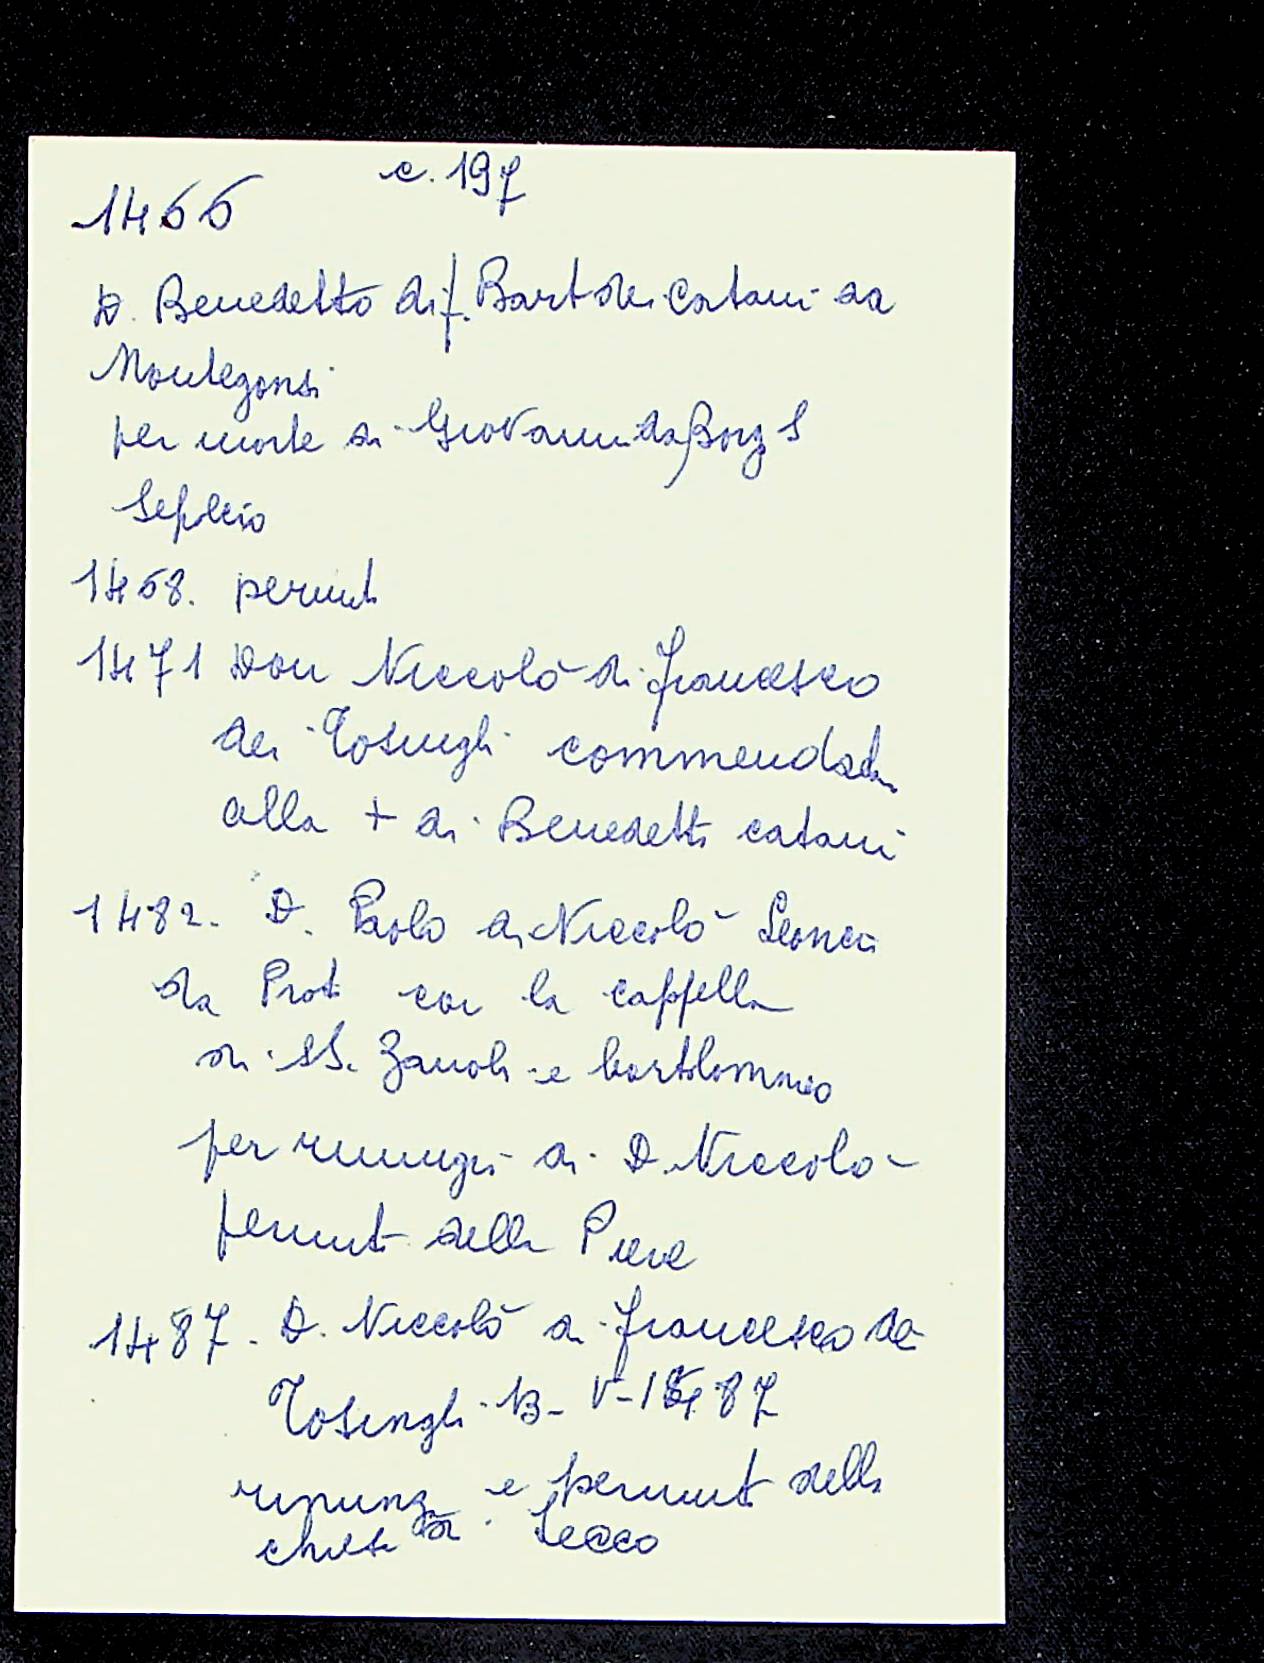 c. 197
1466
D. Benedetto di f. Bartol. Catani da
Montegonzi
per morte di Giovanni da Borg S
Seplcio
1468. permut
1471 Don Niccolò di Francesco
dei Tosinghi commendat.
alla + di Benedetti catani
1482. D. Paolo di Niccolò
da Prat con la cappella
di SS. Zanobi e bartolommeo
per rinunzi di D. Niccolò
permut della Pieve
1487. D. Niccolò di Francesco da
Tosinghi 13- V-1487
rinunz e permut della
chiesa di Lecco